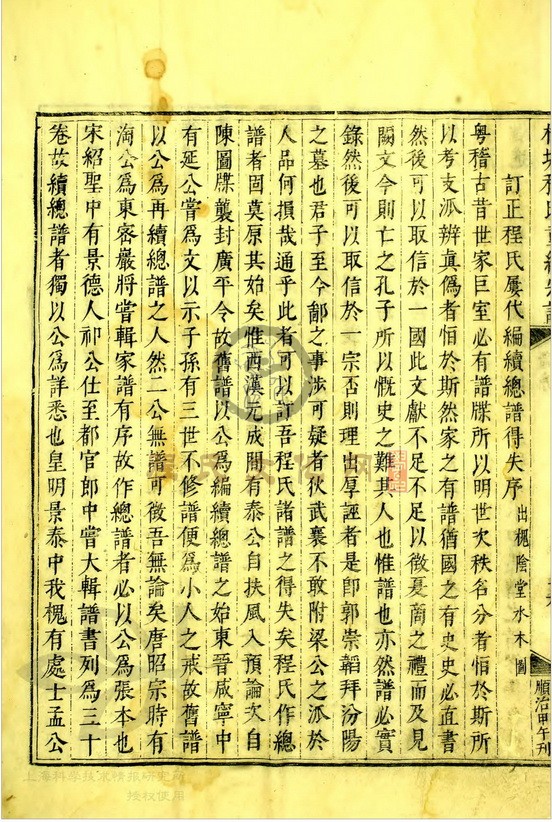 訂正程氏屢代編續總譜得失序 出槐陰堂水木圖
順治甲午刊
粤稽古昔世家巨室必有譜牒所以明世次秩名分者恒於斯所
以考支派辨真偽者恒於斯然家之有譜猶國之有史史必直書
然後可以取信於一國此文獻不足不足以徵夏商之禮而及見
闕文今則亡之孔子所以慨史之難其人也惟譜也亦然譜必實
錄然後可以取信於一宗否則理出厚誣者是即郭崇韜拜汾陽
之墓也君子至今鄙之事涉可疑者狄武襄不敢附梁公之派於
人品何損哉通乎此者可以訂吾程氏諸譜之得失矣程氏作總
譜者固莫原其始矣惟西漢元成間有泰公自扶風入預論次自
陳圖牒襲封廣平令故舊譜以公為編續總譜之始東晉咸寧中
有延公嘗為文以示子孫有三世不修譜便為小人之戒故舊譜
以公為再續總譜之人然二公無譜可徵吾無論矣唐昭宗時有
淘公為東密嚴將嘗輯家譜有序故作總譜者必以公為張本也
宋紹聖中有景德人祁公仕至都官郎中嘗大輯譜書列為三十
卷故續總譜者獨以公為詳悉也皇明景泰中我槐有處士孟公
上海科學技術情報研究所
授权使用